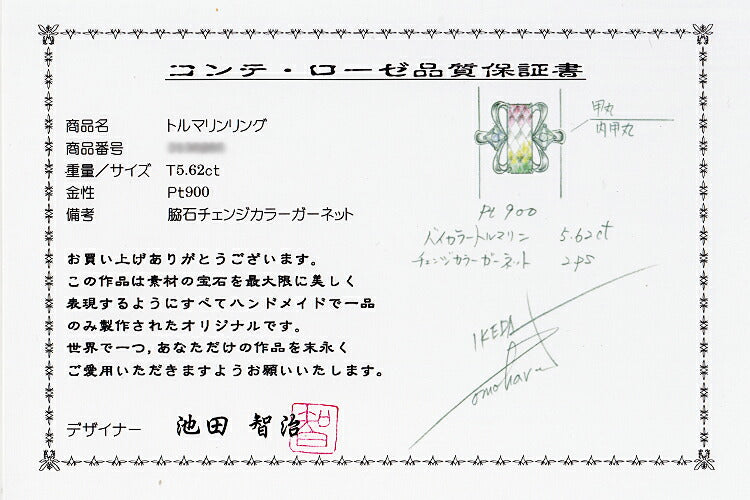 コンテ・ローゼ品質保証書
商品名 トルマリンリング
商品番号
重量／サイズ T5.62ct
金性 Pt900
備考 脇石チェンジカラーガーネット
お買い上げありがとうございます。
この作品は素材の宝石を最大限に美しく
表現するようにすべてハンドメイドで一品
のみ製作されたオリジナルです。
世界で一つ,あなただけの作品を末永く
ご愛用いただきますようお願いいたします。
デザイナー 池田 智治
智
甲丸
内甲丸
Pt 900
バイカラートルマリン 5.62ct
チェンジカラーガーネット 2PS
IKEDA
omoharu